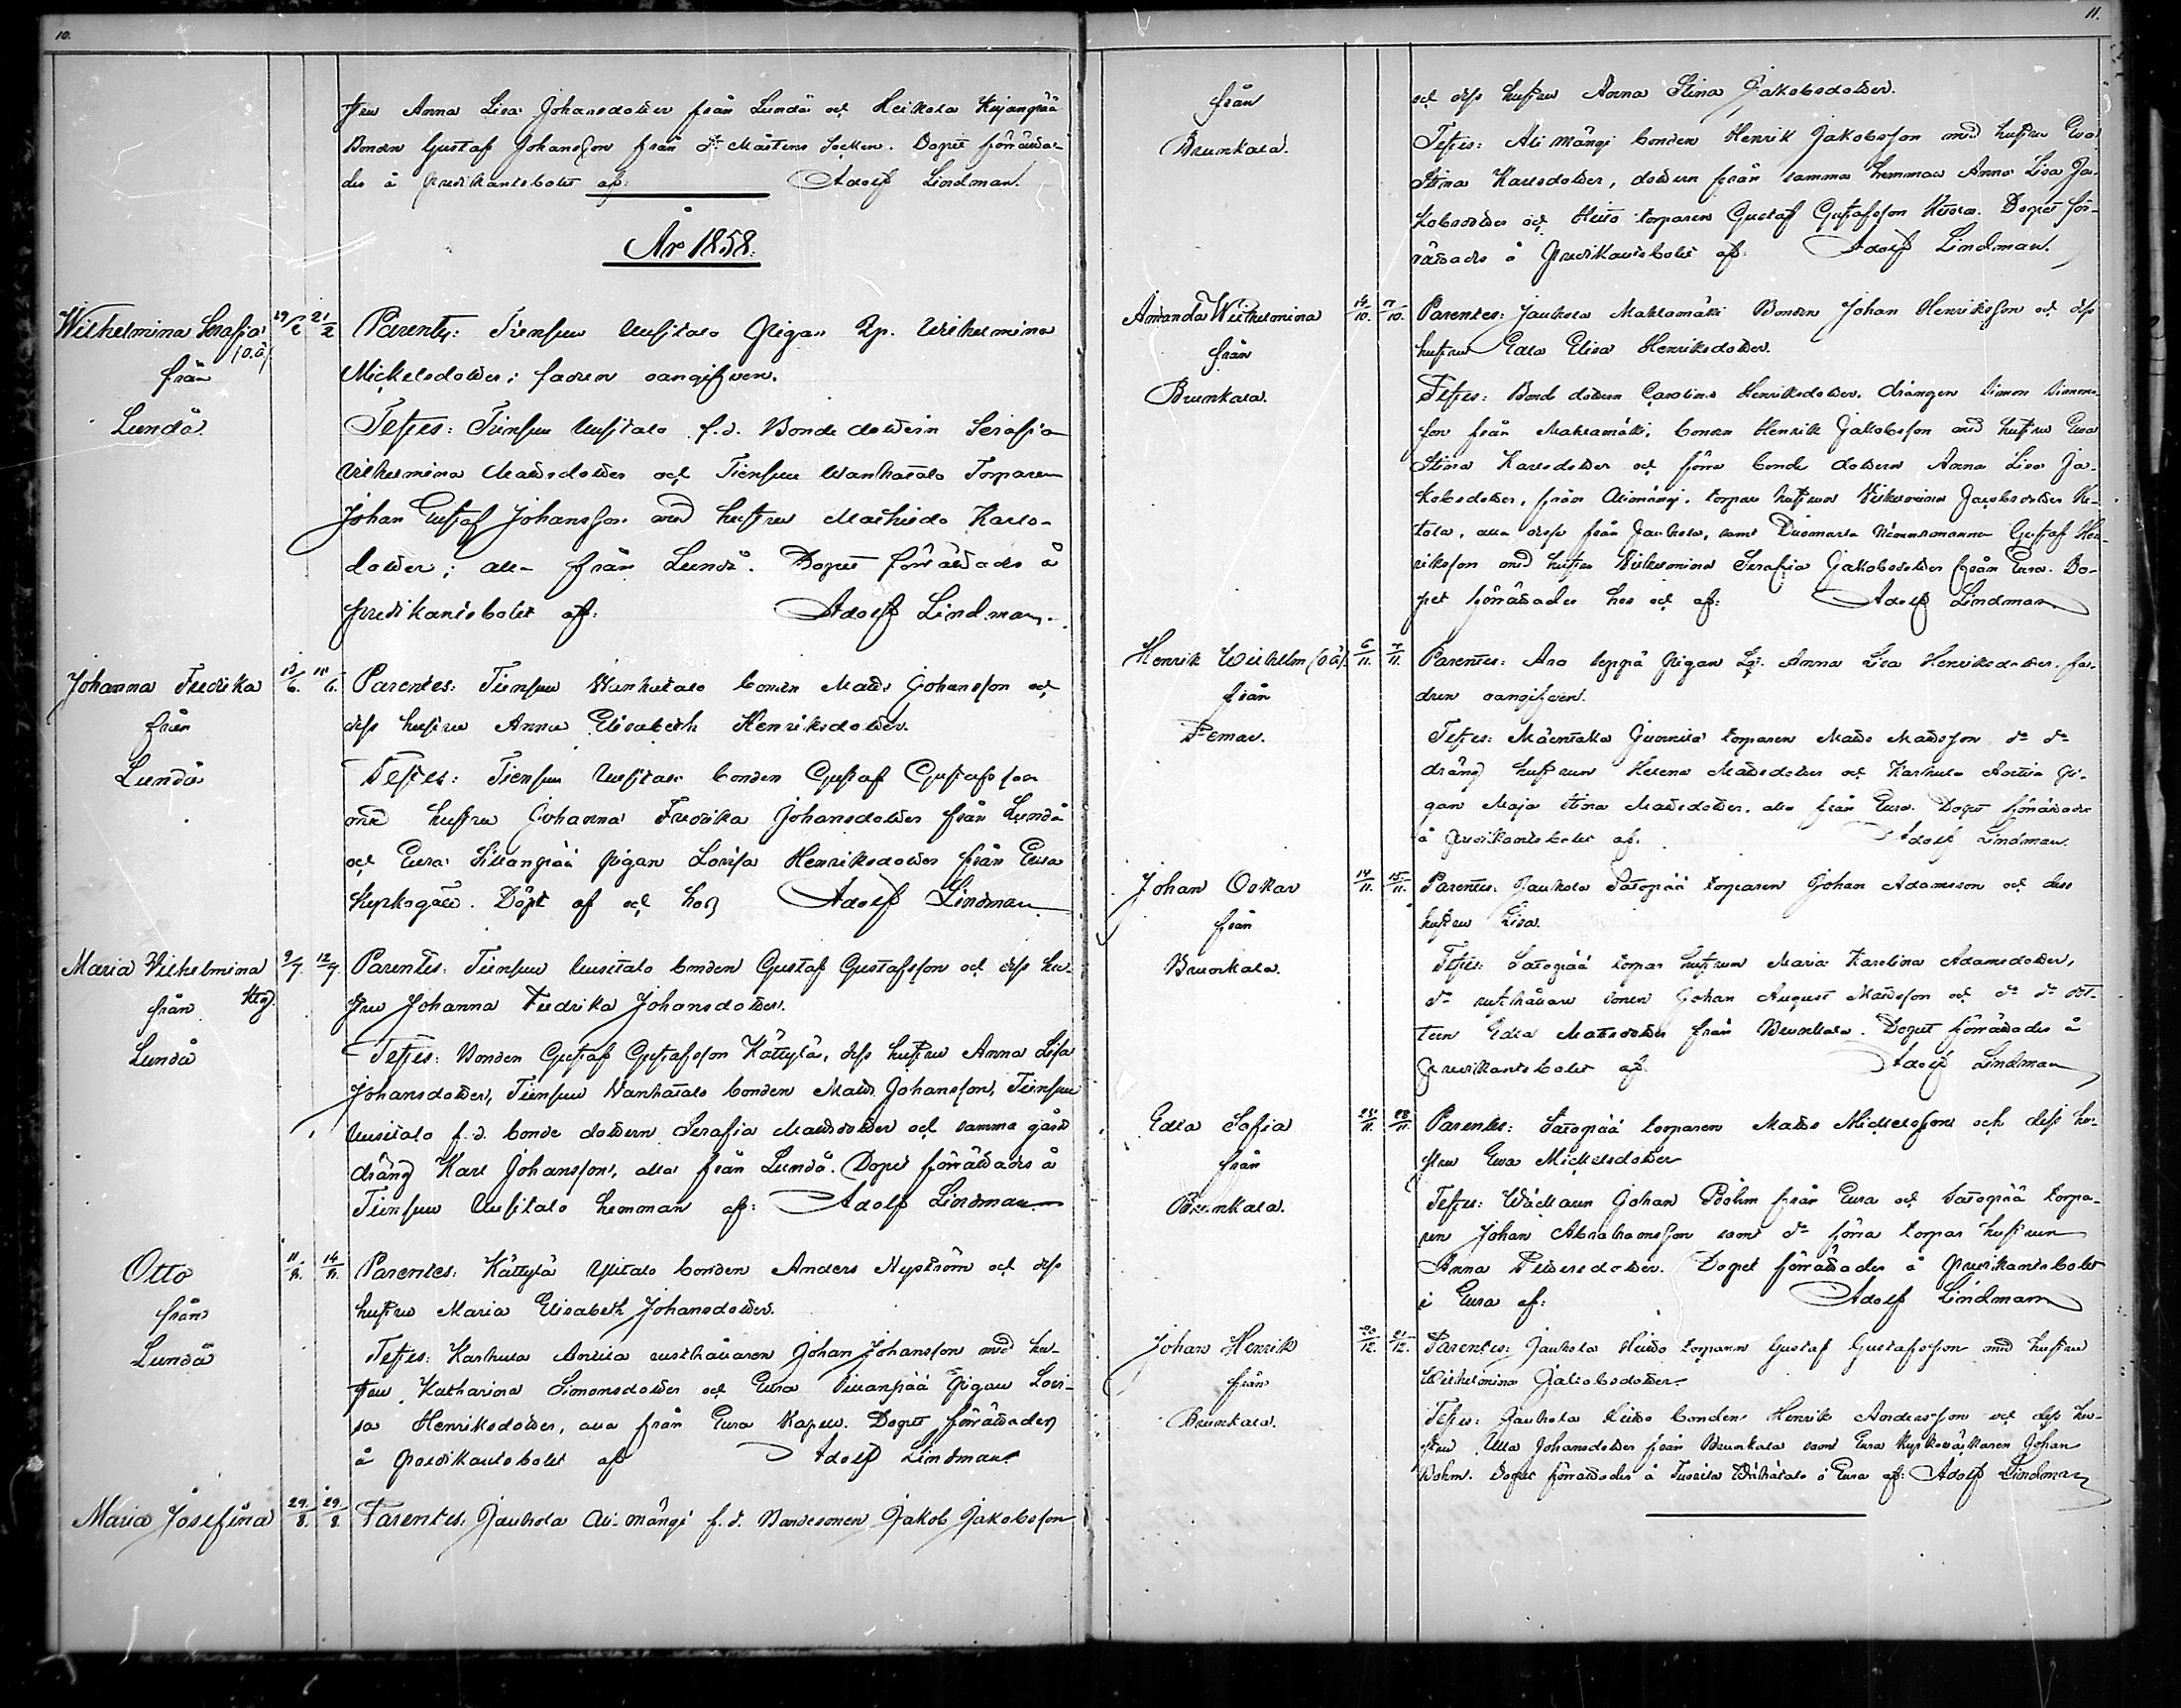 10.
stru Anna Lisa Johansdotter från Lundå och Heikola Kujanpää
Bonden Gustaf Johansson från St Mårtens Socken. Dopet förrättades
des å predikantsbolet af: Adolf Lindman.
År 1858.
Wilhelmina Serafia (o.ä)
från
Lundå.
19/2 21/2
Parentes: Tiensuu Uusitalo Pigan Lp. Wilhelmina
Mickelsdotter; fadren oangifven.
Testes: Tiensuu Uusitalo f.d. Bonde dottern Serafia
Wilhelmina Matsdotter och Tiensuu Wanhatalo Torparen
Johan Gustaf Johansson med hustru Mathilda Karls-
dotter; alla från Lundå. Dopet förrättades å
predikantsbolet af: Adolf Lindman.
Johanna Fredrika
från
Lundå
Parentes: Tiensuu Wanhatalo bonden Matts Johansson och
dess hustru Anna Elisabeth Henriksdotter.
Testes: Tiensuu Uusitalo bonden Gustaf Gustafsson
med hustru Johanna Fredrika Johansdotter från Lundå
och Eura Sillanpää pigan Lovisa Henriksdotter från Eura
Kyrkogård. Döpt af och hos Adolf Lindman
Maria Wilhelmina
från
Lundå
9/7. 12/7.
Parentes: Tiensuu Uusitalo bonden Gustaf Gustafsson och dess hu-
stru Johanna Fredrika Johansdotter.
Testes: Bonden Gustaf Gustafsson Kättylä, dess hustru Anna Lisa
Johansdotter, Tiensuu Wanhatalo bonden Matts Johansson, Tiensuu
Uusitalo f.d. bonde dottern Serafia Mattsdotter och samma gård
dräng Karl Johansson, alla från Lundå. Dopet förrättades å
Tiensuu Uusitalo hemman af: Adolf Lindman
Otto
från
Lundå
11/8. 14/8.
Parentes: Kättylä Ylitalo bonden Anders Nyström och dess
hustru Maria Elisabeth Johansdotter.
Testes: Karhula Anttila rusthållaren Johan Johansson med hu-
stru Katharina Simonsdotter och Eura Sillanpää Pigan Lovi-
sa Henriksdotter, alla från Eura Kapell. Dopet förrättades
å predikantsbolet af Adolf Lindman
Maria Josefina
29./8. 29/8.
Parentes: Jauhola Ali-Mängi f.d. Bondesonen Jakob Jakobsson
11.
från
Brunkala.
och dess hustru Anna Stina Jakobsdotter.
Testes: Ali Mängi bonden Henrik Jakobsson med hustru Eva
Stina Karlsdotter, dottern från samma hemman Anna Lisa Ja-
kobsdotter och torparen Gustaf Gustafsson Dopet för-
rättades å predikantsbolet af: Adolf Lindman.
Amanda Wilhelmina
från
Brunkala.
14/10. 17/10.
Parentes: Jauhola Mahlamäki Bonden Johan Henriksson och dess
hustru Edla Elisa Henriksdotter.
Testes: Bond dottern Carolina Henriksdotter, drängen Simon Simons-
son från Mahlamäki, bonden Henrik Jakobsson med hustru Eva
Stina Karlsdotter och förra bonde dottern Anna Lisa Ja-
kobsdotter, från Alimängi, torpare hustrun Wilhelmina Jacobsdotter
alla desse från Jauhola, samt Nämndemannen Gustaf Hen-
riksson med hustru Wilhelmina Serafia Jakobsdotter från Eura. Do-
pet förrättades hos och af: Adolf Lindman
Henrik Wilhelm (o.ä).
från
6/11. 7/11.
Parentes: Ala Seppä Pigan Lp. Anna Lisa Henriksdotter, fa-
dren oangifven.
Testes: Mäentaka torparen Matts Mattsson, do do
dräng hustrun Helena Mattsdotter och Karhula Anttila pi-
gan Maja Stina Mattsdotter, alla från Eura. Dopet förrättades
å predikantsbolet af. Adolf Lindman.
Johan Oskar
från
Brunkala.
14/11. 15/11.
Parentes: Jauhola Satopää torparen Johan Adamsson och dess
hustru Lisa.
Testes: Satopää torpar hustrun Maria Karolina Adamsdotter,
do rusthållare sonen Johan August Mattsson och do do dot-
tern Edla Mattsdotter från Brunkala. Dopet förrättades å
predikantsbolet af. Adolf Lindman
Edla Sofia
från
Brunkala.
Parentes: Satopää torparen Matts Mickelsson och dess hu-
stru Eva Mickelsdotter
Testes: Wäcklaren Johan Böhm från Eura och Satopää torpa-
ren Johan Abrahamsson samt do förra torpar hustrun
Anna Pettersdotter. Dopet förrättades å predikantsbolet
i Eura af: Adolf Lindman
Johan Henrik
från
Brunkala.
20/12. 21/12.
Parentes: Jauhola torparen Gustaf Gustafsson med hustru
Wilhelmina Jakobsdotter.
Testes: Jauhola bonden Henrik Andersson och dess hu-
stru Ulla Johansdotter från Brunkala samt Eura Kyrkoväktaren Johan
Böhm. Dopet förrättades å i Eura af: Adolf Lindman